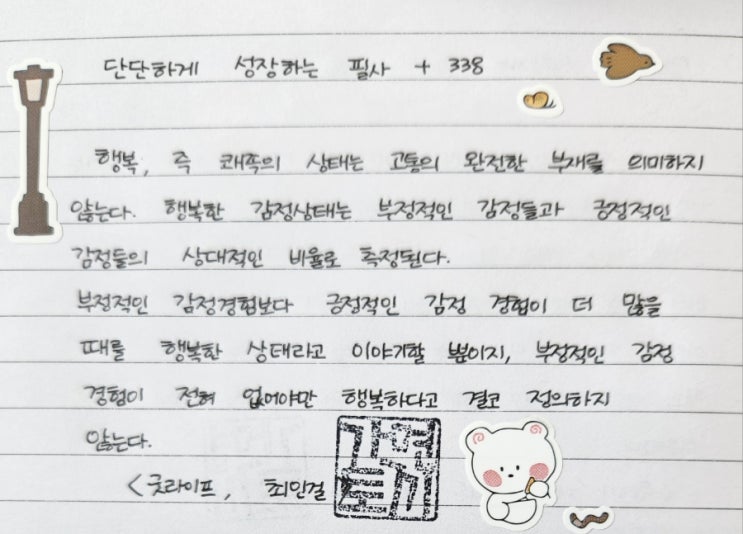 단단하게 성장하는 필사 + 338
행복, 즉 쾌족의 상태는 고통의 완전한 부재를 의미하지
않는다. 행복한 감정상태는 부정적인 감정들과 긍정적인
감정들의 상대적인 비율로 측정된다.
부정적인 감정경험보다 긍정적인 감정 경험이 더 많을
때를 행복한 상태라고 이야기할 뿐이지, 부정적인 감정
경험이 전혀 없어야만 행복하다고 결코 정의하지
않는다.
<굿라이프, 최인걸